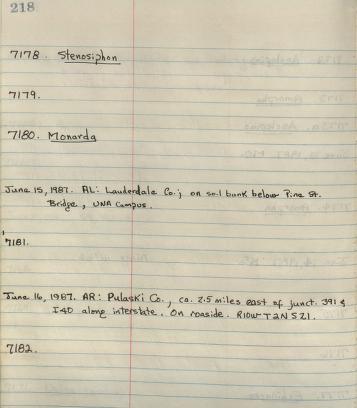 218
7178. Stenosiphon
7179.
7180. Monarda
June 15, 1987. AL: Lauderdale Co.; on soil bank below Pine St.
Bridge, UNA Campus.
7181.
June 16, 1987. AR: Pulaski Co., ca. 2.5 miles east of junct. 391 &
I40 along interstate. On roaside. R10W T2N S21.
7182.